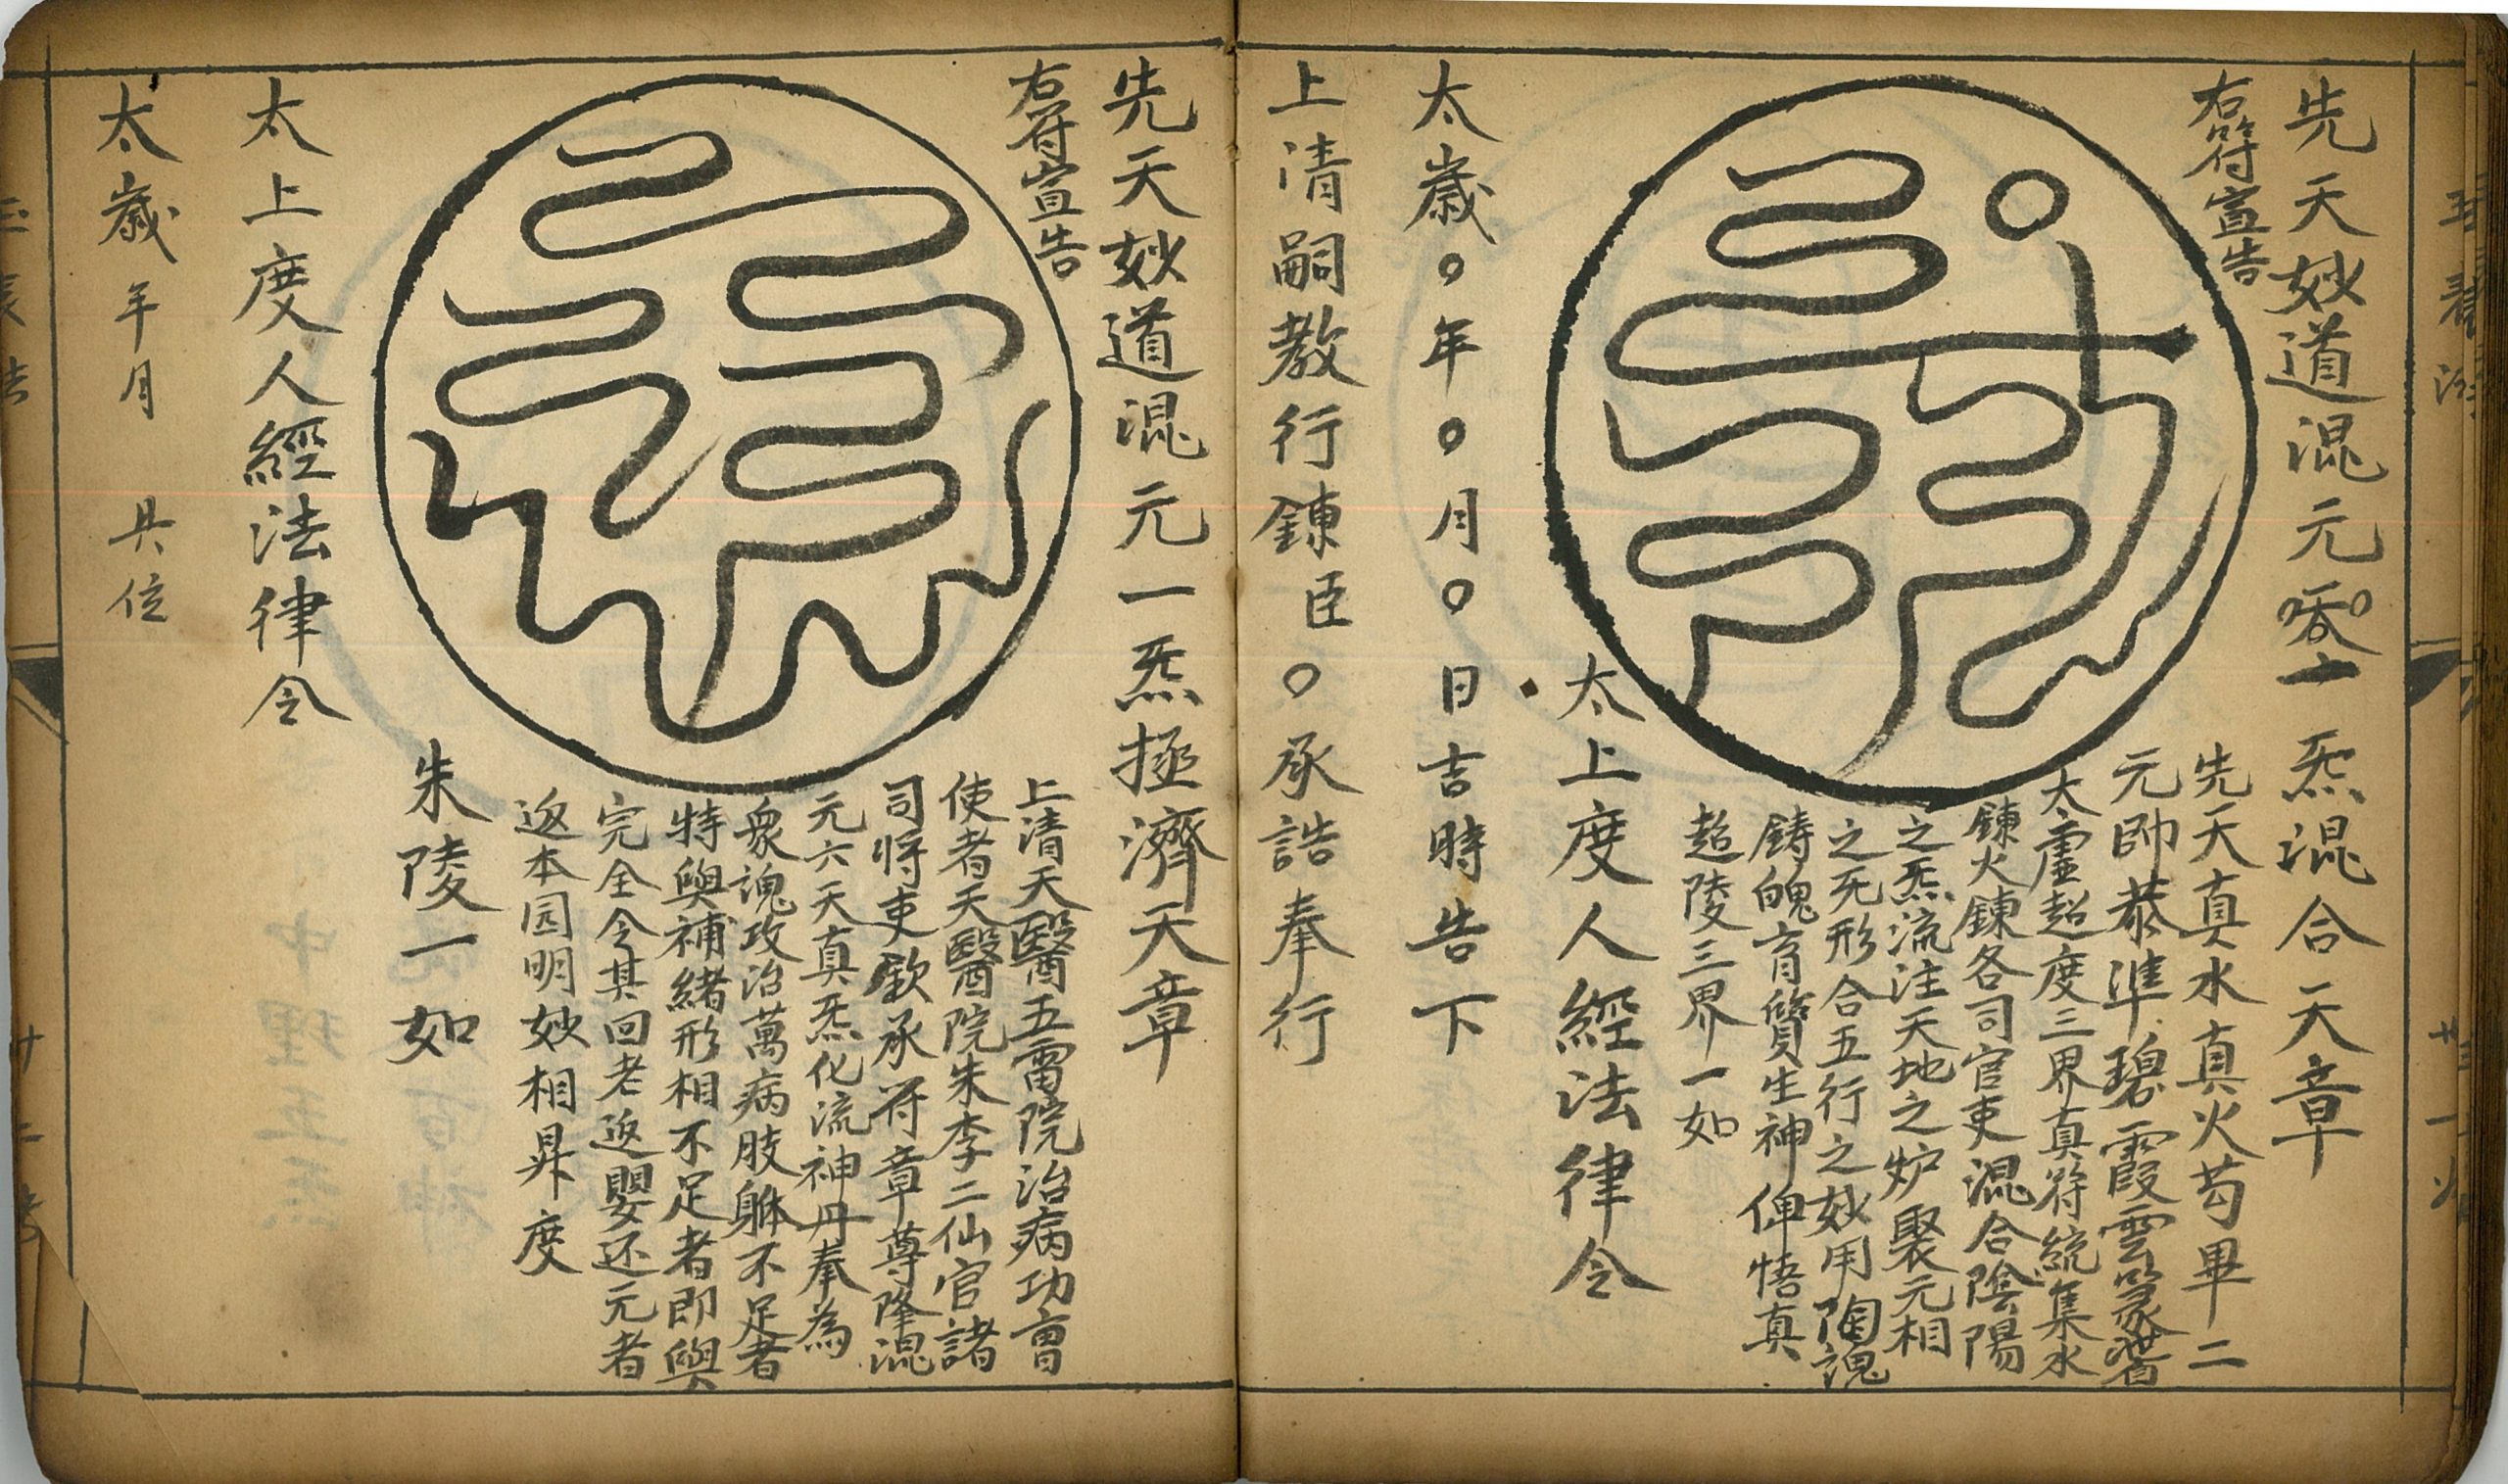 先天妙道混元一炁混合天章
右符宣告
先天真水真火芶畢二
元帥恭準碧霞雲篆
太虛超度三界真符統集水
鍊火鍊各司官吏混合陰陽
之炁流注天地之炉聚元相
之死形合五行之妙用陶魂
鋳魄育質生神俾悟真
超陵三界一如
太上度人經法律令
太歲〇年〇月〇日吉時告下
上清嗣教行鍊臣〇承誥奉行
先天妙道混元一炁拯濟天章
右符宣告
上清天醫五雷院治病功曹
使者天醫院朱李二仙官諸
司将吏欽承符章尊隆混
元六天真炁化流神丹奉為
衆魂攻治萬病肢躰不足者
特與補緒形相不足者即與
完全令其回老返嬰还元者
返本园明妙相昇度
朱陵一如
太上度人經法律令
太歲年月 具位